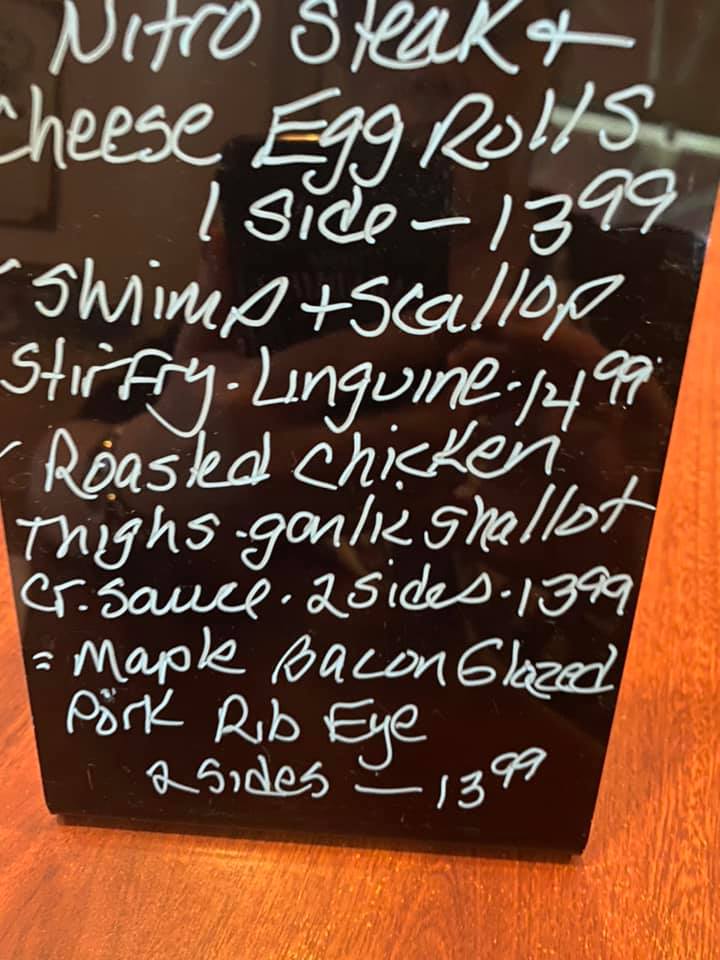 Nitro Steak +
Cheese Egg Rolls
1 Side - 13 99
Shrimp + Scallop
Stirfry. Linguine. 14 99
Roasted Chicken
Thighs. garlic shallot
cr. sauce. 2 sides. 13 99
= Maple Bacon Glazed
Pork Rib Eye
2 sides - 13 99